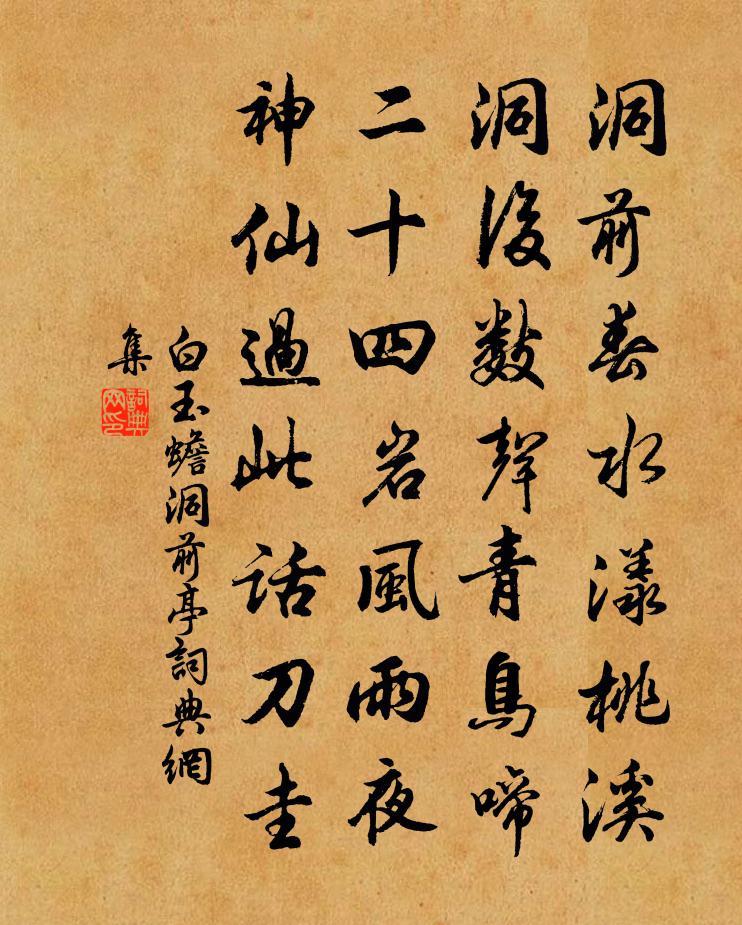 洞前春水漾桃溪
洞後數聲青鳥啼
二十四岩風雨夜
神仙過此話刀圭
白玉蟾洞前亭詞典網
集
詞典
网印